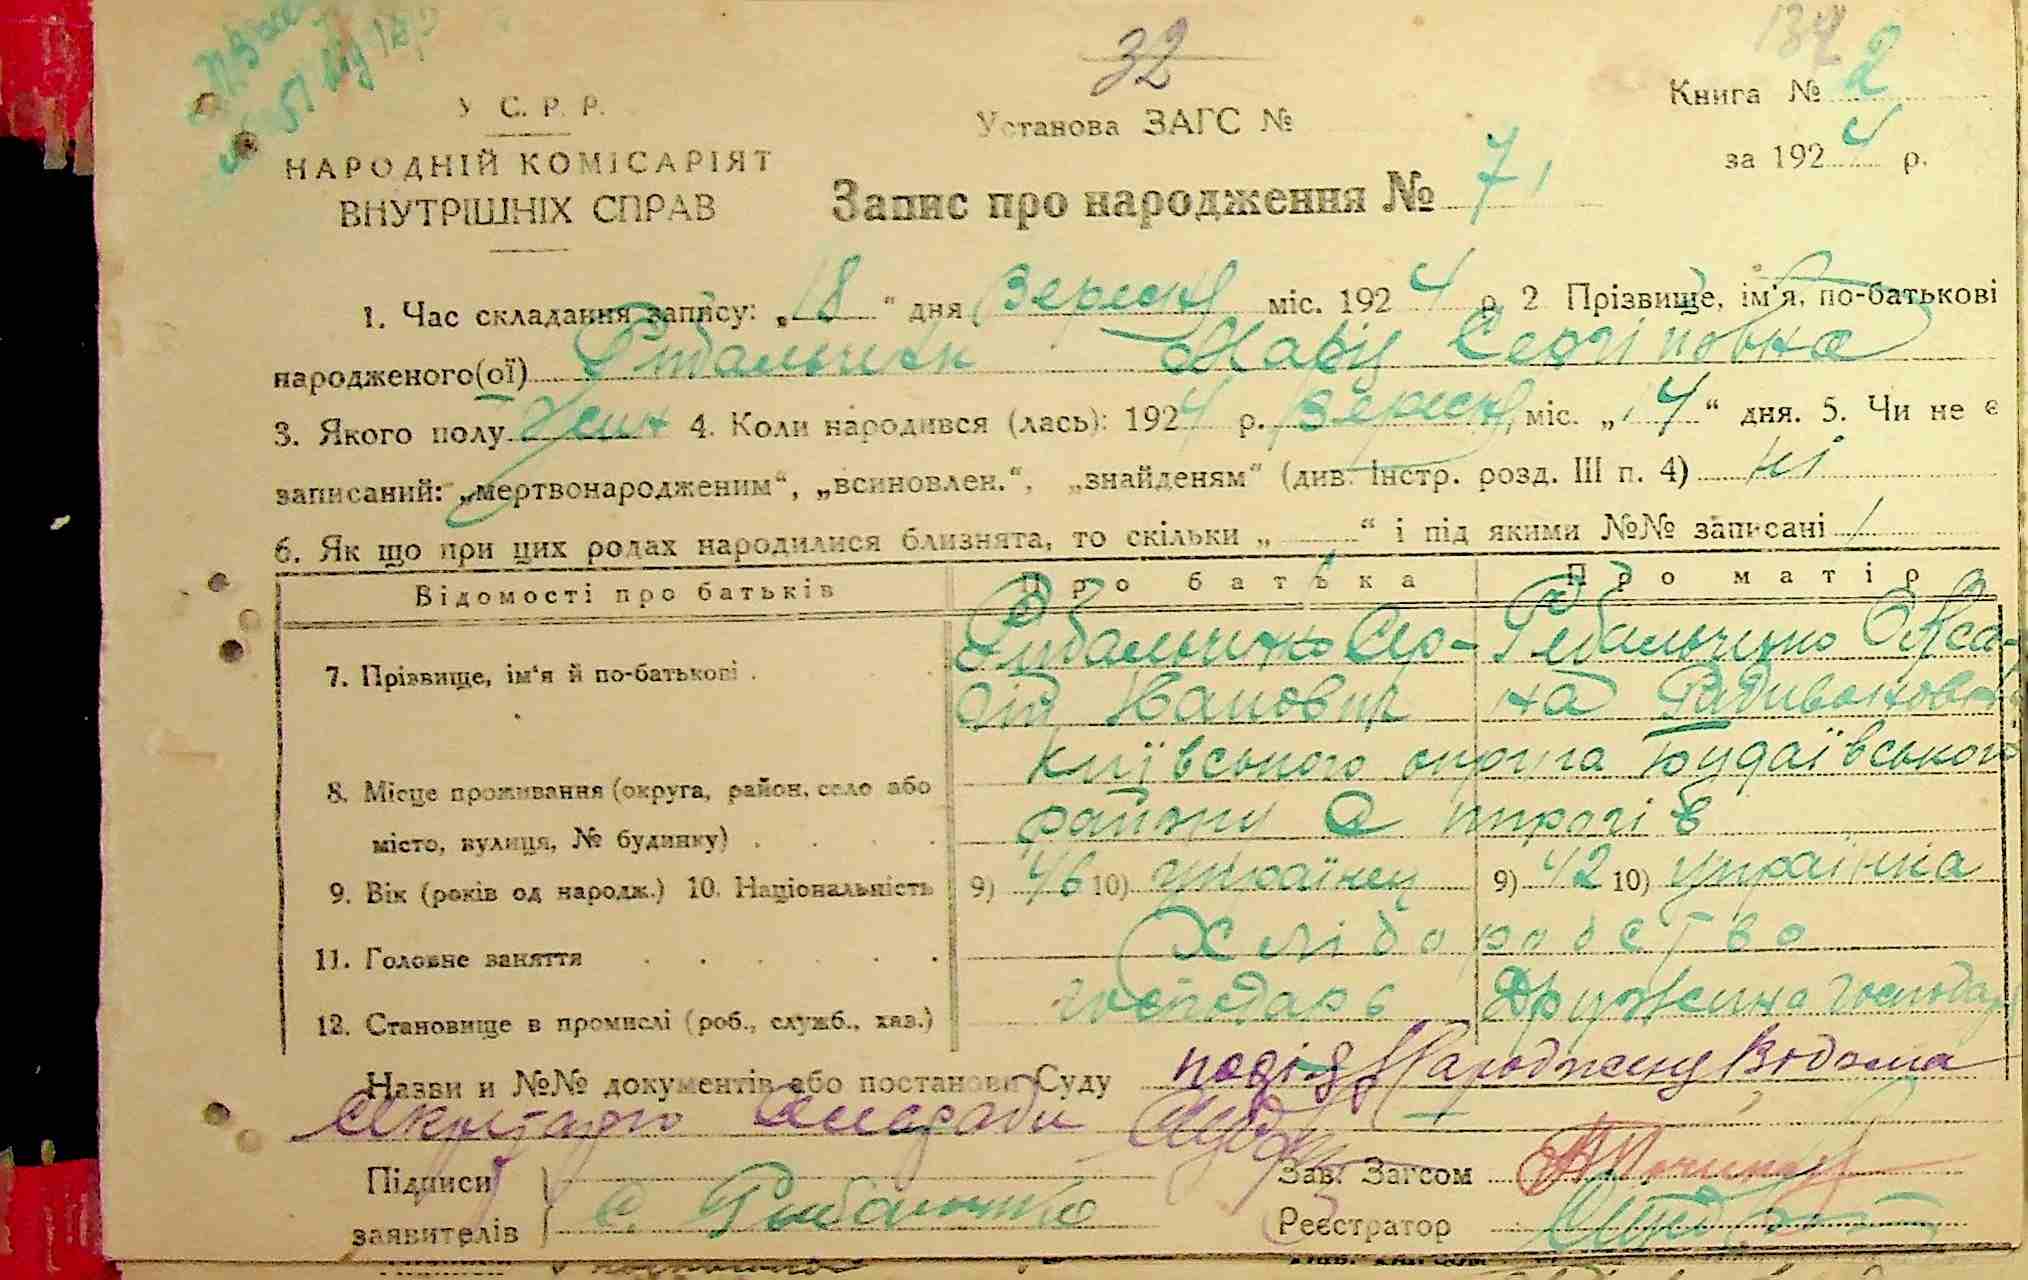 32
У С. Р. Р.
НАРОДНІЙ КОМІСАРІЯТ
ВНУТРІШНІХ СПРАВ
Установа ЗАГС №
Книга № 2
за 1924 р.
Запис про народження № 71
1. Час складання запису: „18“ дня Вересня міс. 1924 р. 2 Прізвище, ім'я, по-батькові
народженого(ої) Рибальчик Марія Сергіовна
3. Якого полу жин 4. Коли народився (лась): 1924 р. Вересня міс. „14“ дня. 5. Чи не є
записаний: „мертвонародженим“, „всиновлен.“, „знайденям“ (див. Інстр. розд. III п. 4) ні
6. Як що при цих родах народилися близнята, то скільки „ “ і під якими №№ записані
Відомості про батьків Про батька Про матір
7. Прізвище, ім'я й по-батькові Рибальченко Сер-
гій Іванович
Рибальченко Окса-
на Радивоновна
8. Місце проживання (округа, район, село або
місто, вулиця, № будинку)
Київського округа Будаївського
району С Пирогів
9. Вік (років од народж.) 10. Національність 9) 46 10) українец 9) 42 10) українка
11. Головне заняття Хліборобство
12. Становище в промислі (роб., служб., хаз.) господарь Дружина господаря
Назви и №№ документів або постанови Суду подія Народженя Відома
Секретарю Сільради
Підписи
заявителів С. Рибальченко
Зав. Загсом
Реєстратор